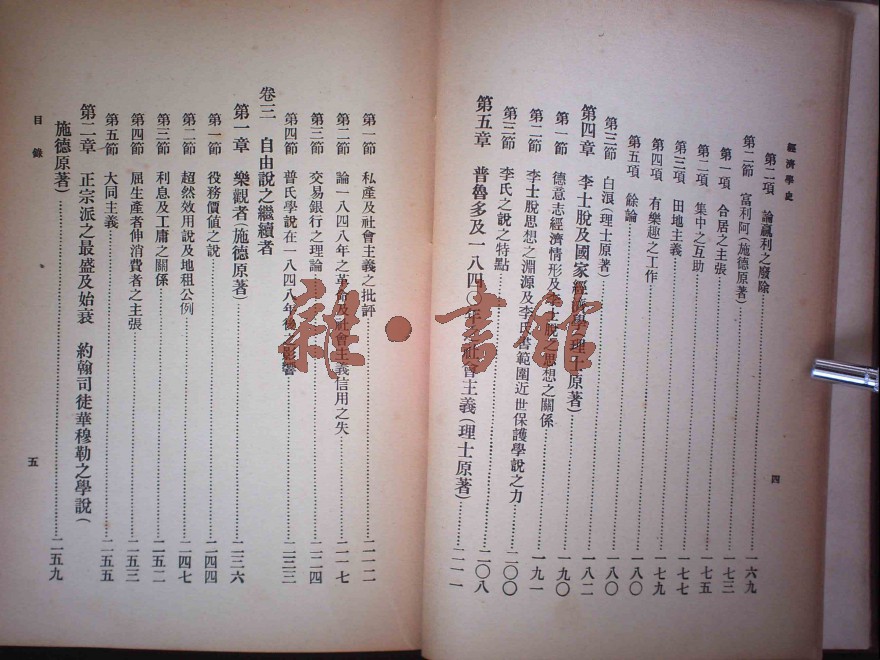 經濟學史
第二項 論贏利之廢除………一六九
第二節 富利阿(施德原著)………一七三
第一項 合居之主張………一七三
第二項 集中之互助………一七五
第三項 田地主義………一七七
第四項 有樂趣之工作………一七九
第五項 餘論………一八〇
第三節 白浪(理士原著)………一八〇
第四章 李士脫及國家經濟學(理士原著)………一八二
第一節 德意志經濟情形及李士脫之思想之關係………一九〇
第二節 李士脫思想之淵源及李氏書範圍近世保護學說之力………一九一
第三節 李氏之說之特點………二〇〇
第五章 普魯多及一八四〇年之社會主義(理士原著)………二〇八
四
第一節 私產及社會主義之批評………二一二
第二節 論一八四八年之革命及社會主義信用之失………二一七
第三節 交易銀行之理論………二二四
第四節 普氏學說在一八四八年後之影響………二三三
卷三 自由說之繼續者
第一章 樂觀者(施德原著)………二三六
第一節 役務價值之說………二四四
第二節 超然效用說及地租公例………二四七
第三節 利息及工庸之關係………二五二
第四節 屈生產者伸消費者之主張………二五三
第五節 大同主義………二五五
第二章 正宗派之最盛及始衰 約翰司徒華穆勒之學說(
施德原著)………二五九
目錄
五
雜·書館